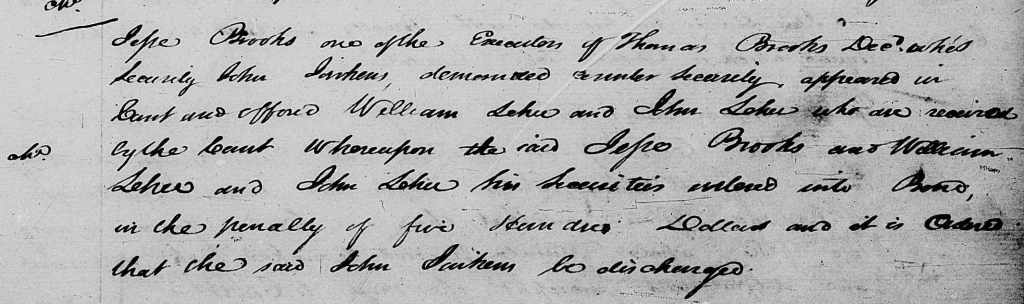 Jesse Brooks one of the Executors of Thomas Brooks Decd. who's
security John Jenkens, demanded counter security, appeared in
Court and offered William Leher and John Leher who are received
by the Court Whereupon the said Jesse Brooks and William
Leher and John Leher his securities entered into Bond,
in the penalty of five Hundred Dollars and it is Ordered
that the said John be discharged.